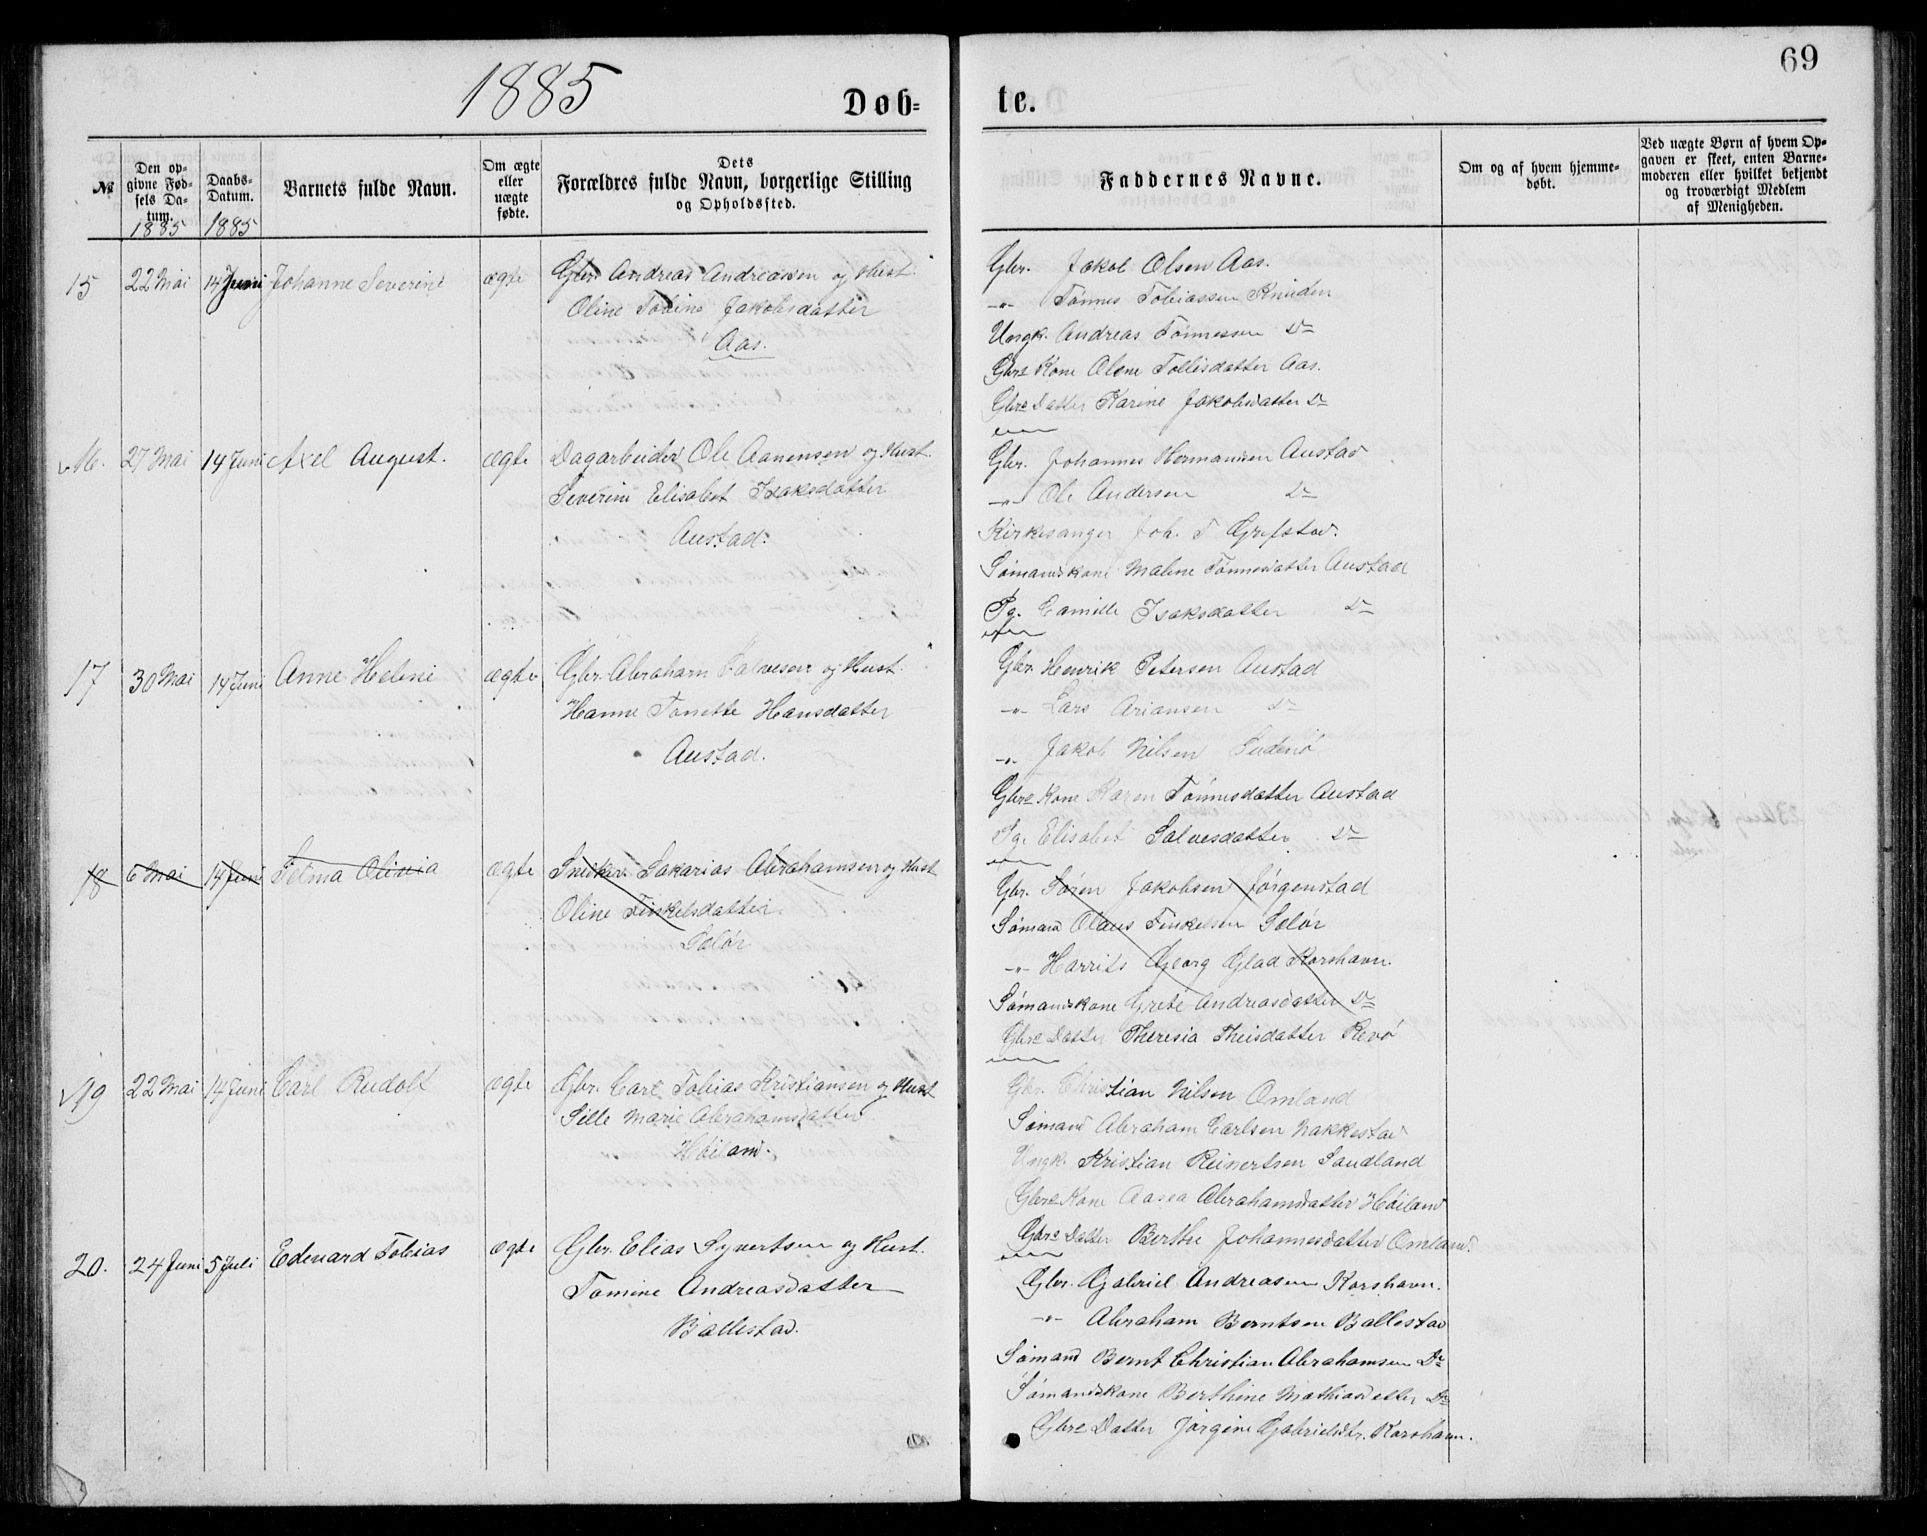 1885
Døb-
te.
69
№
Den op-
givne Fød-
sels Da-
tum.
1885
Daabs-
Datum.
1885
Barnets fulde Navn.
Om ægte
eller
uægte
fødte.
Dets
Forældres fulde Navn, borgerlige Stilling
og Opholdssted.
Faddernes Navne.
Om og af hvem hjemme-
døbt.
Ved uægte Børn af hvem Op-
gaven er skeet, enten Barne-
moderen eller hvilket bekjendt
og troværdigt Medlem
af Menigheden.
15 22 Mai 14 Juni Johanne Severine ægte Gbr Andreas Andreassen og Hust.
Oline Tobine Jakobsdatter
Aas.
Gbr. Jakob Olsen Aas.
-"- Tønnes Tobiassen Knuden
Ungk. Andreas Tønnessen Do
Gbrs Kone Olene Tollisdatter Aas.
Gbrs Datter Karine Jakobsdatter Do
16. 27 Mai 14 Juni Axel August. ægte Dagarbeider Ole Aanensen og Hust.
Severine Elisabet Isaksdatter
Austad.
Gbr. Johannes Hermansen Austad
-"- Ole Andersen Do
Kirkesanger Joh. T Grefstad.
Sømandskone Maline Tønnesdatter Austad
Pg. Camille Isaksdatter Do
17 30 Mai 14 Juni Anne Heline ægte Gbr. Abraham Salvesen og Hust.
Hanne Tonette Hansdatter
Austad.
Gbr. Henrik Petersen Austad
-"- Lars Ariansen Do
-"- Jakob Nilsen
Gbrs Kone Karen Tønnesdatter Austad
Pg. Elisabet Salvesdatter Do
18 6 Mai 14 Juni Selma Olivia ægte Snedker Sakarias Abrahamsen og Hust
Oline Finkelsdatter
Selør
Gbr. Søren Jakobsen Jørgenstad
Sømand Olaus Finkelsen Selør
-"- Harrits Georg Glad Korshavn.
Sømandskone Grete Andreasdatter Do
Gbrs Datter Theresia Theisdatter Revø
19 22 Mai 14 Juni Carl Rudolf ægte Gbr. Carl Tobias Kristiansen og Hust
Sille Marie Abrahamsdatter
Høiland.
Gbr. Christian Nilsen Omland
Sømand Abraham Carlsen Nakkestad
Ungk. Kristian Reinertsen Sandland
Gbrs Kone Aasea Abrahamsdatter Høiland
Gbrs Datter Berthe Johannesdatter Omland.
20. 24 Juni 5 Juli Edevard Tobias ægte Gbr. Elias Syvertsen og Hust.
Tomine Andreasdatter
Ballestad.
Gbr. Gabriel Andreasen Korshavn.
-"- Abraham Berntsen Ballestad
Sømand Bernt Christian Abrahamsen Do
Sømandskone Berthine Mathiasdatter Do
Gbrs Datter Jørgine Gabrielsdtr. Korshavn.